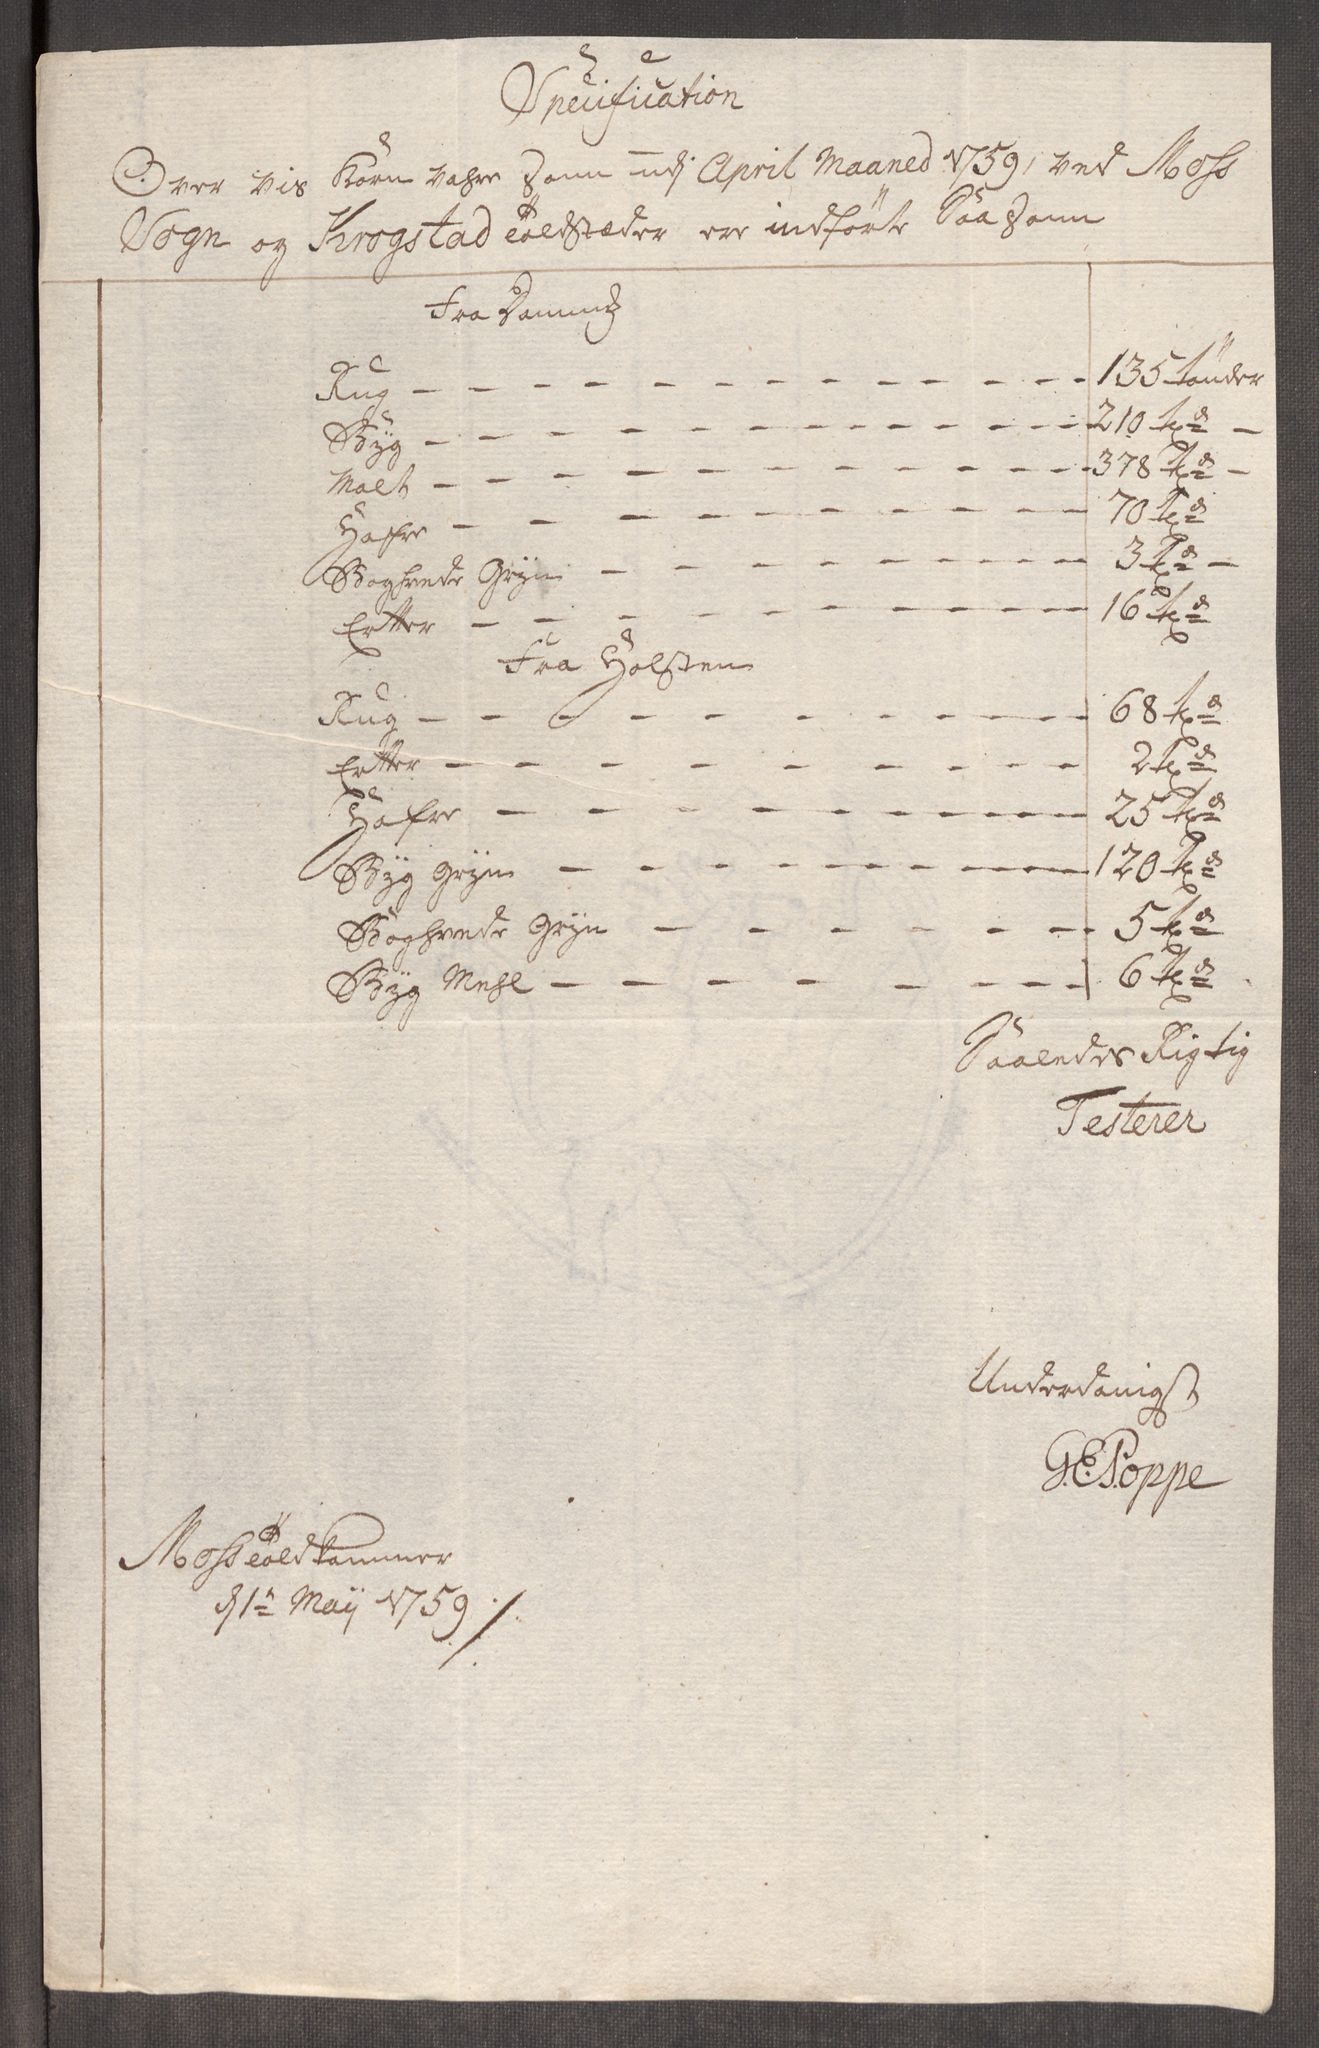 Specification
Over vis Korn vahre som udj April Maaned 1759, ved Moss
Sogn og Krogstad Toldstæder ere indförte Saasom
Fra Danm:
Rug 135 tönder
Byg 210 td
Malt 378 td
Hafre 70 td
Boghvede Gryn 3 td
Ertter 16 td
Fra Holsten
Rug 68 td
Ertter 2 td
Hafre 25 td
Byg Gryn 120 td
Boghvede Gryn 5 td
Byg Mehl 6 td
Saaledes Rigtig
Testerer
Underdanigst
G.E. Poppe
Moss Toldkammer
d 1n Maij 1759